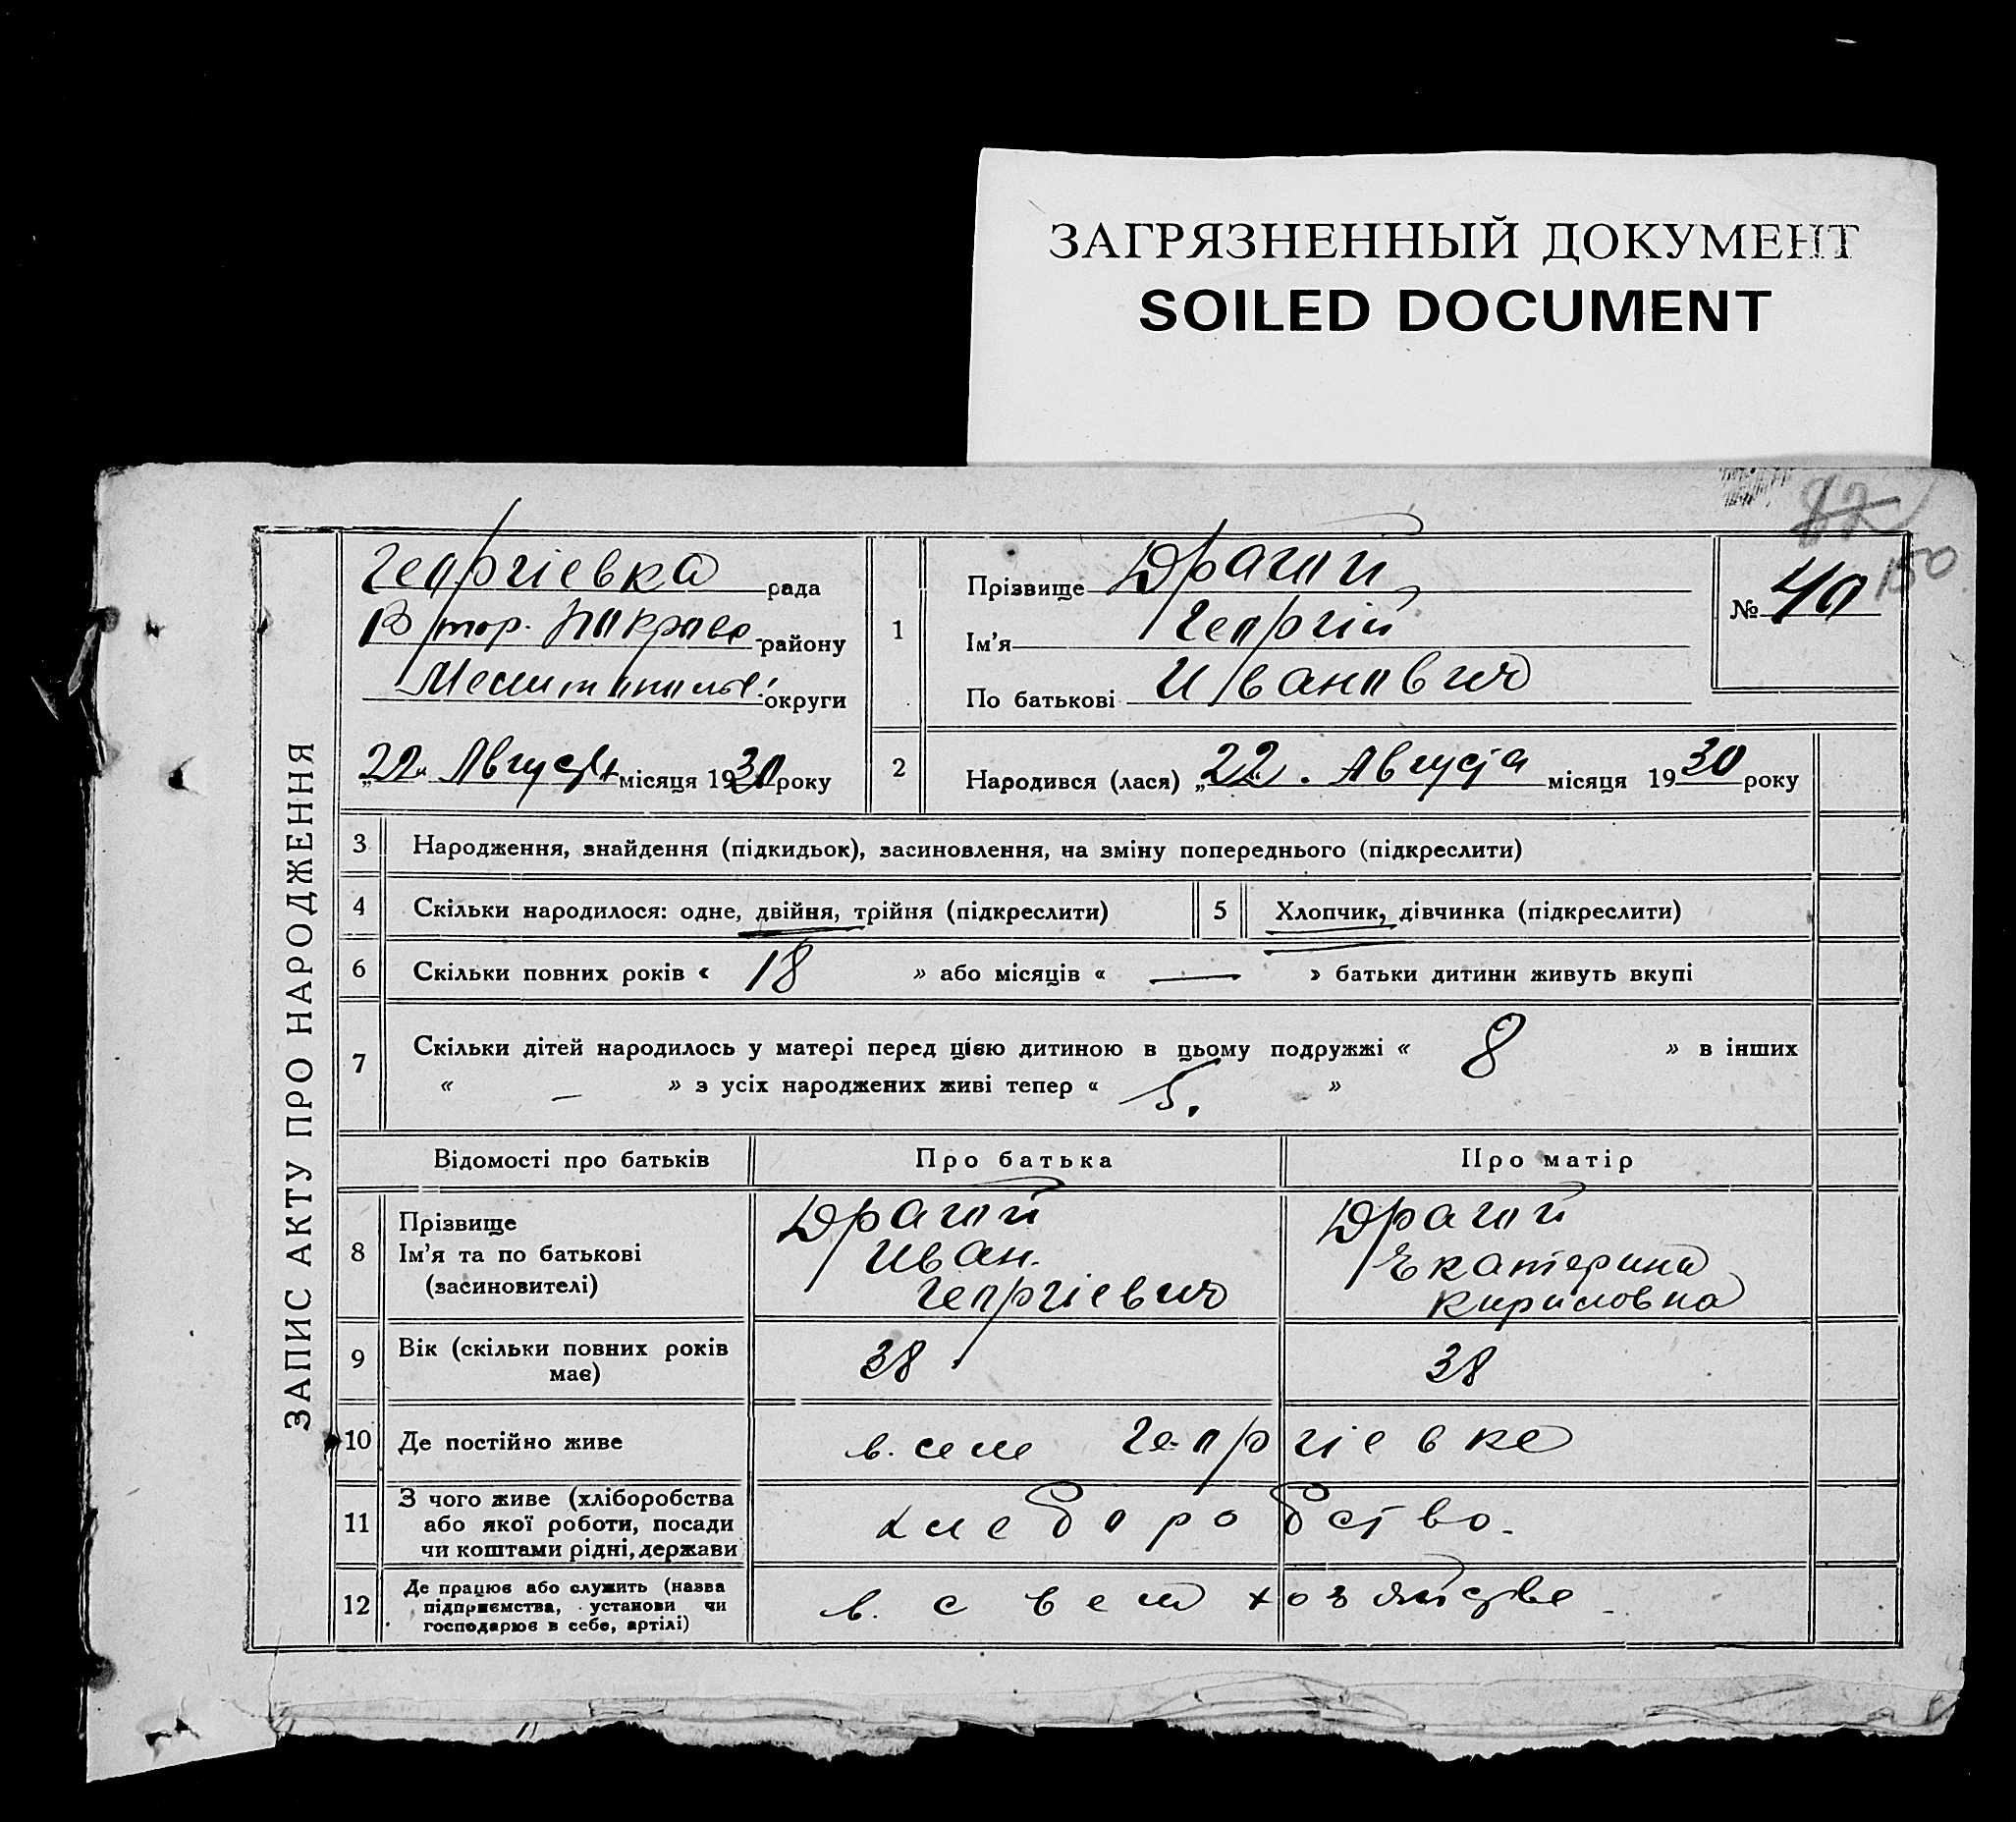 ЗАГРЯЗНЕННЫЙ ДОКУМЕНТ
SOILED DOCUMENT
87
150
ЗАПИС АКТУ ПРО НАРОДЖЕННЯ
Георгіевка рада
району
округи
22 Августа місяця 1930 року
1
Прізвище Драгой
Ім'я Георгій
По батькові Иванович
№ 40
2
Народився (лася) „22„ Августа місяця 1930 року
3 Народження, знайдення (підкидьок), засиновлення, на зміну попереднього (підкреслити)
4 Скільки народилося: одне, двійня, трійня (підкреслити) 5 Хлопчик, дівчинка (підкреслити)
6 Скільки повних років « 18 » або місяців « — » батьки дитини живуть вкупі
7 Скільки дітей народилось у матері перед цією дитиною в цьому подружжі « 8 » в інших
« — » з усіх народжених живі тепер « 5. »
Відомості про батьків Про батька Про матір
8 Прізвище Драгой Драгой
Ім'я та по батькові Иван. Екатерина
(засиновителі) Георгіевич Кириловна
9 Вік (скільки повних років має) 38 38
10 Де постійно живе в. селе Георгіевке
11 З чого живе (хліборобства
або якої роботи, посади
чи коштами рідні, держави
хлеборобство.
12 Де працює або служить (назва
підприємства, установи чи
господарює в себе, артілі)
в. своем хозяйстве